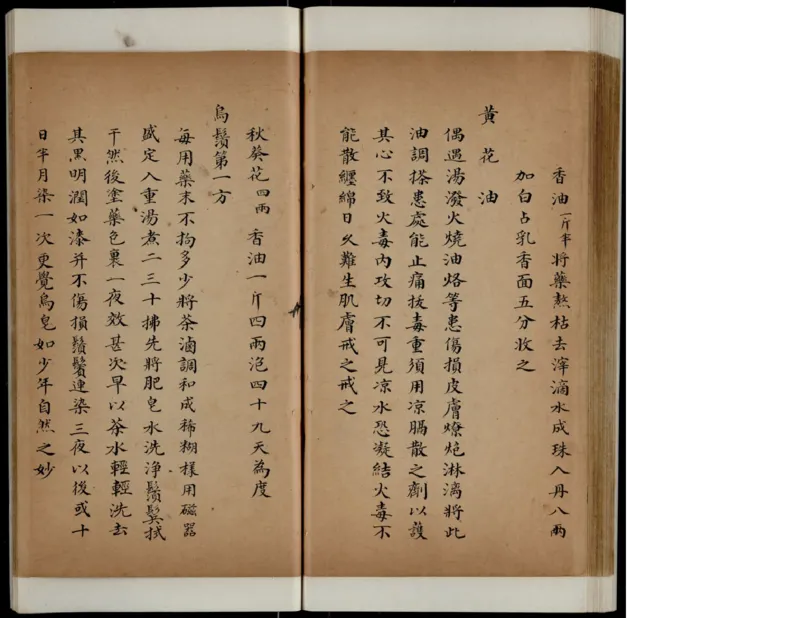 香油一斤半將藥熬枯去滓滴水成珠入丹八兩
加白占乳香面五分收之
黃花油
偶遇湯潑火燒油烙等患傷損皮膚燎炮淋漓將此
油調搽患處能止痛拔毒重須用凉膈散之劑以護
其心不致火毒內攻切不可見凉水恐凝結火毒不
能散纏綿日久難生肌膚戒之戒之
秋葵花四兩香油一斤四兩泡四十九天為度
烏鬚第一方
每用藥末不拘多少將茶滷調和成稀糊樣用磁器
盛定入重湯煮二三十拂先將肥皂水洗淨鬚鬢拭
干然後塗藥色裹一夜效甚次早以茶水輕輕洗去
其黑明潤如漆并不傷損鬚鬢連染三夜以後或十
日半月染一次更覺烏皂如少年自然之妙